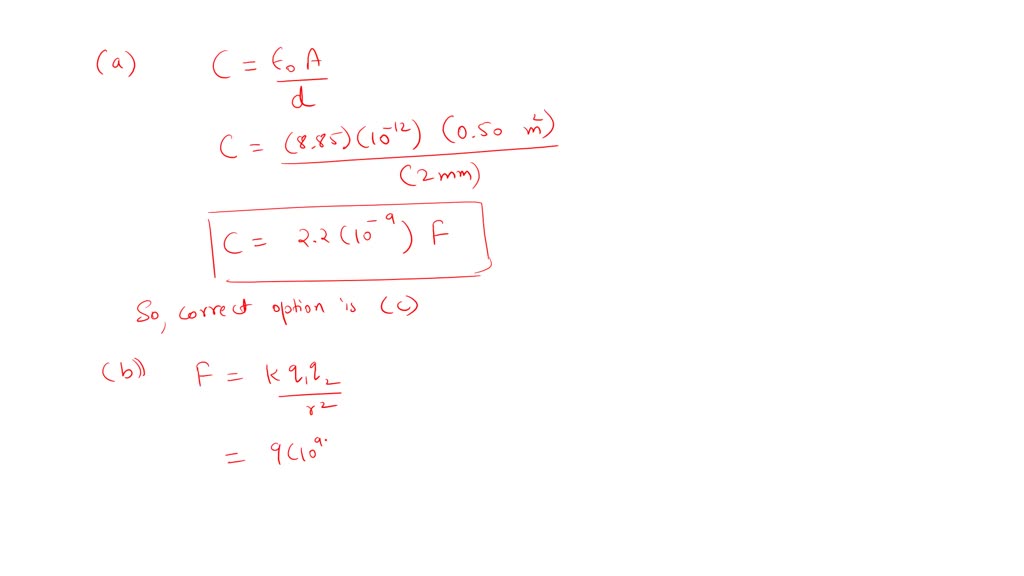 (a) C = ε₀ A / d
C = (8.85)(10⁻¹²) (0.50 m²) / (2mm)
C = 2.2 (10⁻⁹) F
So, correct option is (c)
(b)) F = k q₁q₂ / r²
= 9(10⁹·